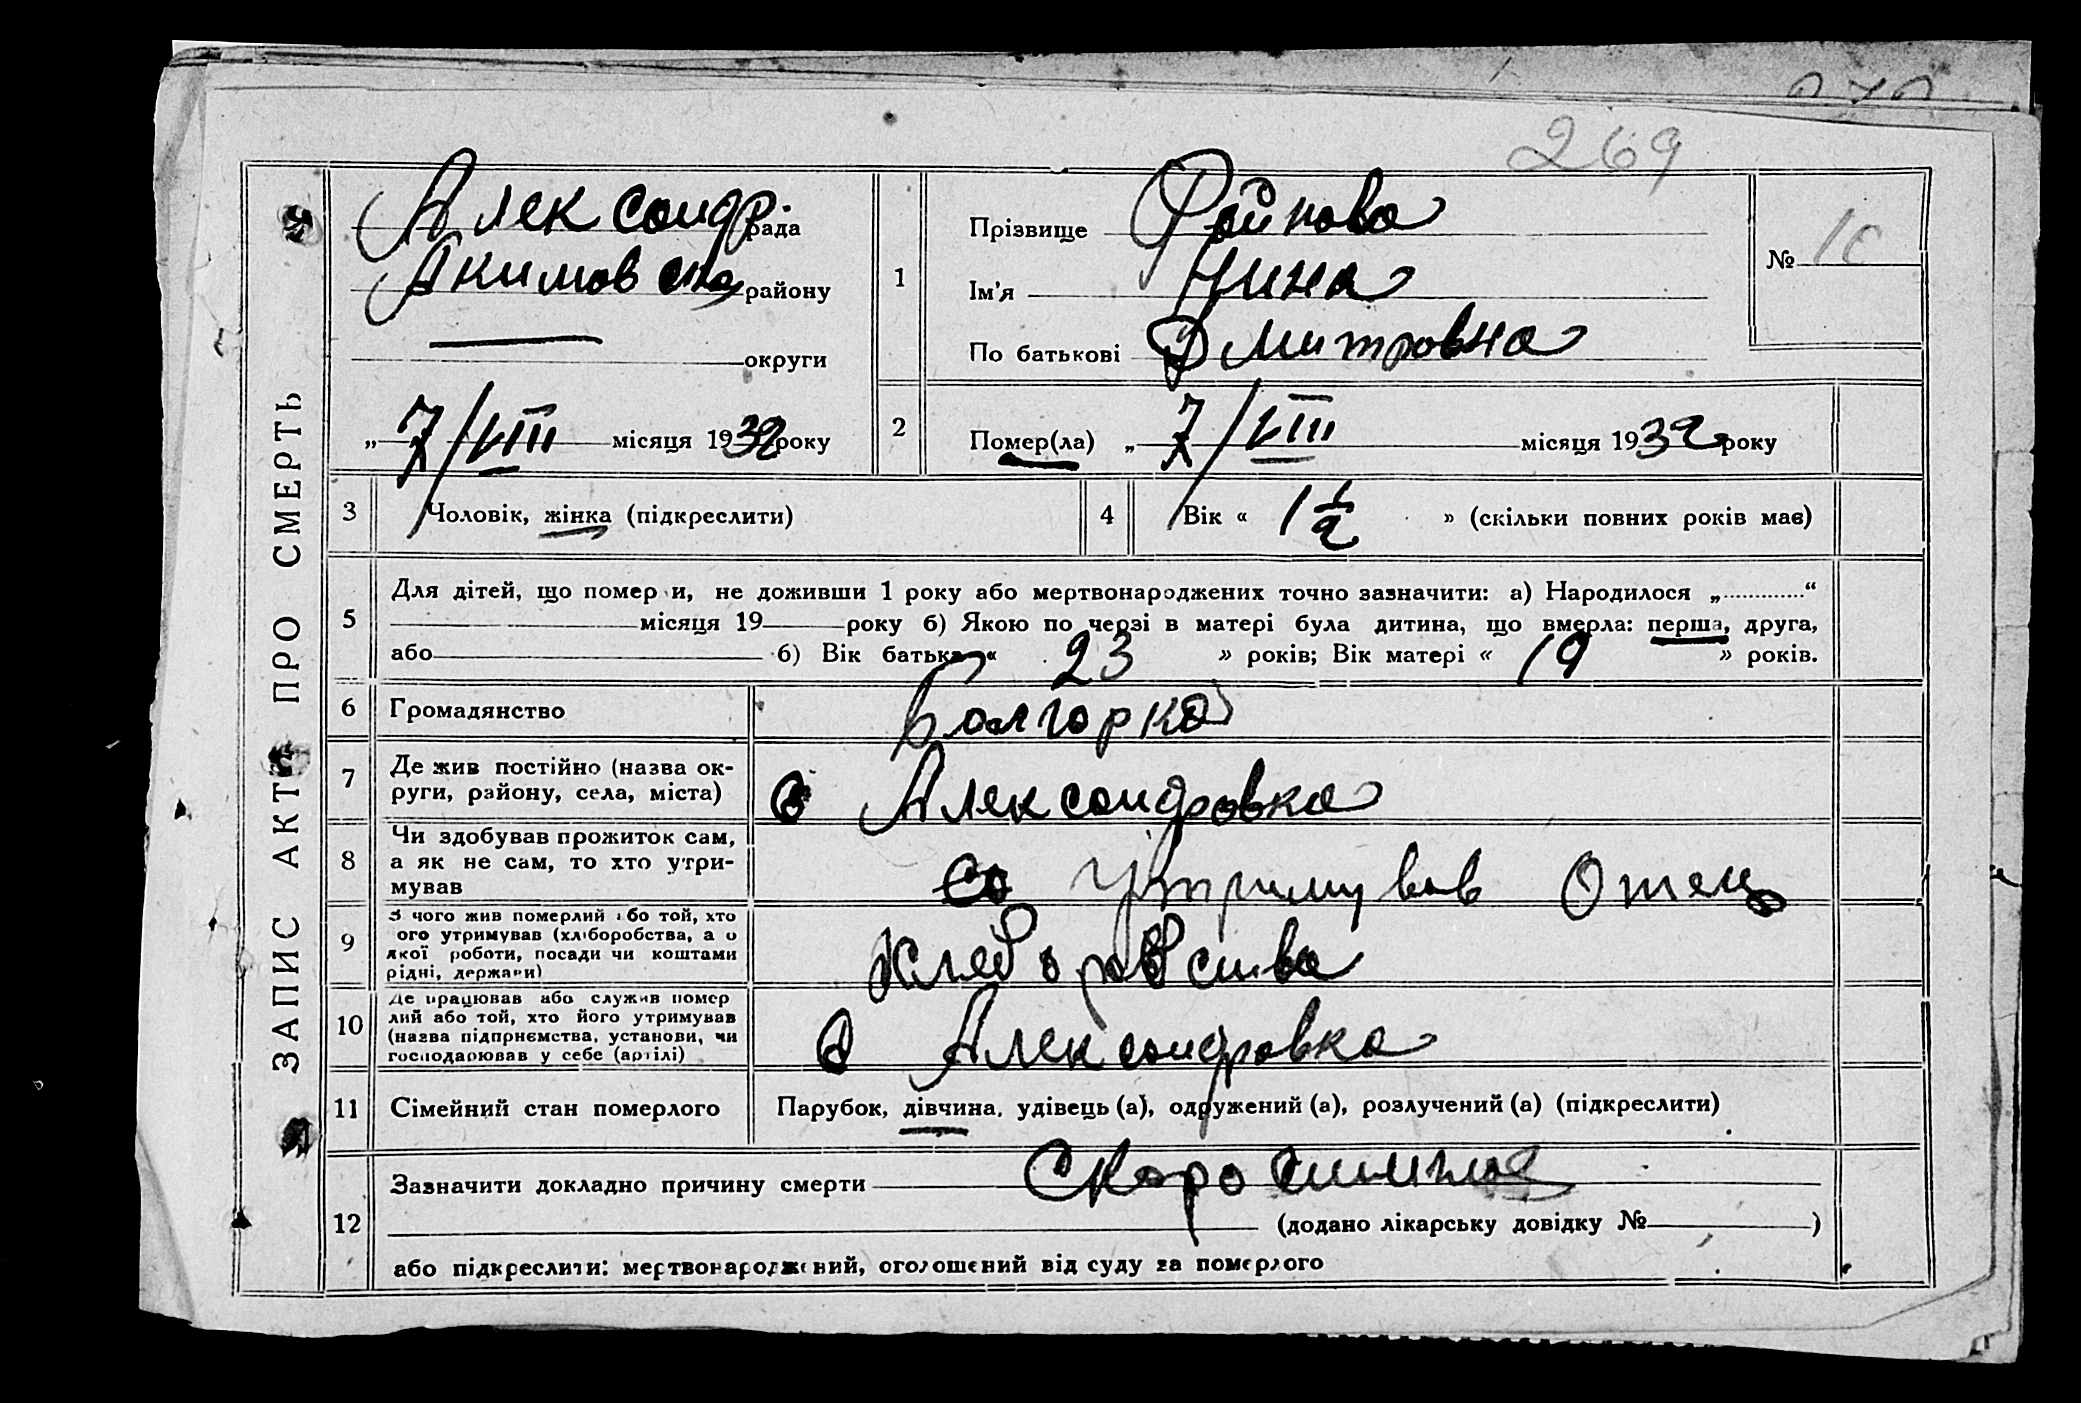 269
ЗАПИС АКТУ ПРО СМЕРТЬ
Александр. рада
Акимовска району
округи
„ 7/VIII місяця 1932 року
1
Прізвище Файнова
Ім'я Нина
По батькові Дмитровна
№ 10
2 Помер(ла) „ 7/VIII місяця 1932 року
3 Чоловік, жінка (підкреслити)
4 Вік « 1 1/2 » (скільки повних років має)
5 Для дітей, що помер и, не доживши 1 року або мертвонароджених точно зазначити: а) Народилося „............“
місяця 19 року б) Якою по черзі в матері була дитина, що вмерла: перша, друга,
або б) Вік батька « 23 » років; Вік матері « 19 » років.
6 Громадянство Болгорка
7 Де жив постійно (назва ок-
руги, району, села, міста)
с Александровка
8 Чи здобував прожиток сам,
а як не сам, то хто утри-
мував
со Утримував Отец
9 З чого жив померлий або той, хто
ого утримував (хліборобства, а о
якої роботи, посади чи коштами
рідні, держави)
Хлеборобства
10 Де працював або служив помер
лий або той, хто його утримував
(назва підпрнємства, установи, чи
господарював у себе (артілі)
с Александровка
11 Сімейний стан померлого
Парубок, дівчина, удівець (а), одружений (а), розлучений (а) (підкреслити)
12 Зазначити докладно причину смерти Скоро
(додано лікарську довідку № )
або підкреслити: мертвонароджений, оголошений від суду за померлого